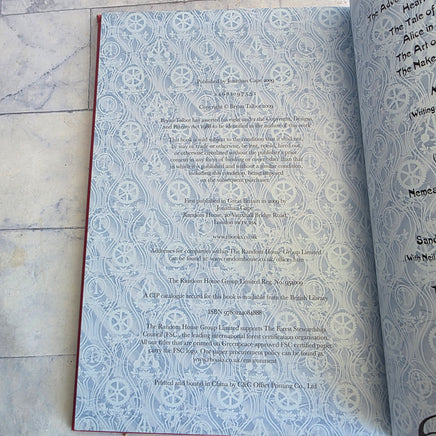 Published by Jonathan Cape 2009
2 4 6 8 10 9 7 5 3 1
Copyright © Bryan Talbot 2009
Bryan Talbot has asserted his right under the Copyright, Designs
and Patents Act 1988 to be identified as the author of this work
This book is sold subject to the condition that it shall not,
by way of trade or otherwise, be lent, resold, hired out,
or otherwise circulated without the publisher's prior
consent in any form of binding or cover other than that
in which it is published and without a similar condition,
including this condition, being imposed
on the subsequent purchaser.
First published in Great Britain in 2009 by
Jonathan Cape
Random House, 20 Vauxhall Bridge Road,
London
www.rbooks.co.uk
Addresses for companies within The Random House Group Limited
can be found at: www.randomhouse.co.uk/offices.htm
The Random House Group Limited Reg. No. 954009
A CIP catalogue record for this book is available from the British Library
ISBN 9780224084888
The Random House Group Limited supports The Forest Stewardship
Council (FSC), the leading international forest certification organisation.
All our titles that are printed on Greenpeace approved FSC certified paper
carry the FSC logo. Our paper procurement policy can be found at
www.rbooks.co.uk/environment
Printed and bound in China by C&C Offset Printing Co., Ltd
The Adve
Heart
The Tale of
Alice in
The Art o
The Nake
(Writing
Nemes
Sand
(With Neil